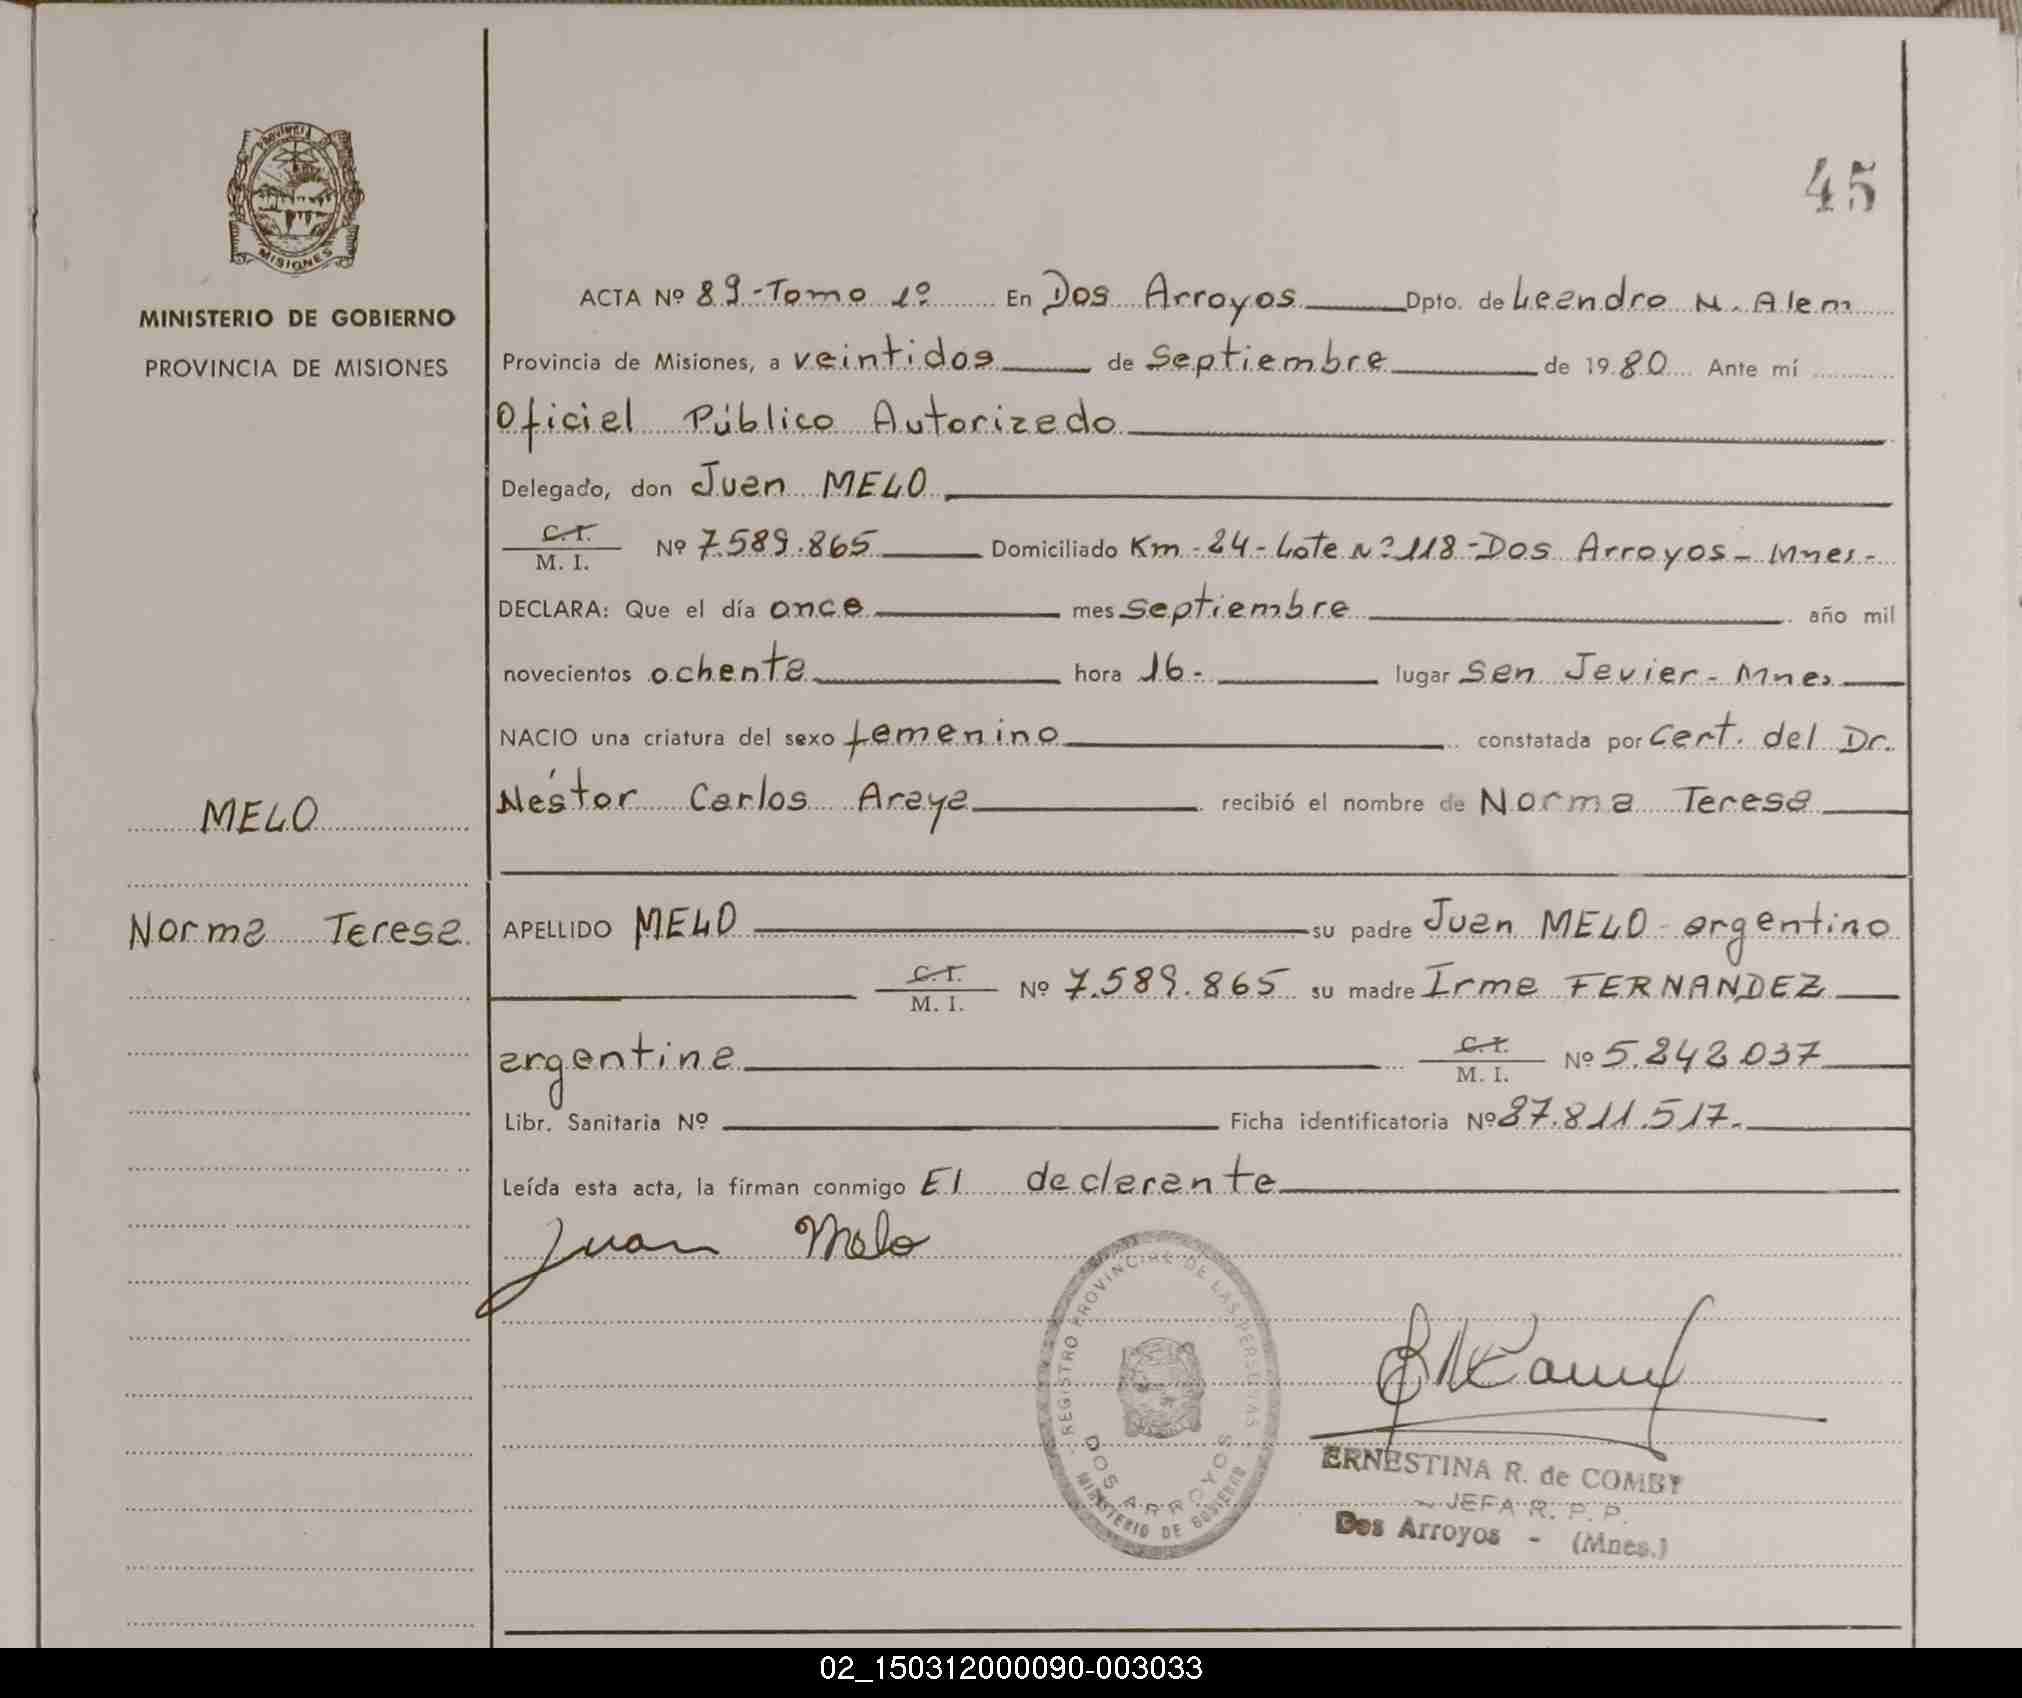 PROVINCIA DE
MISIONES
MINISTERIO DE GOBIERNO
PROVINCIA DE MISIONES
45
ACTA Nº 89-Tomo 1º En Dos Arroyos Dpto. de Leandro N. Alem
Provincia de Misiones, a veintidos de Septiembre de 1980 Ante mí
Oficial Público Autorizado
Delegado, don Juan MELO
C. I.
M. I. Nº 7.589.865 Domiciliado Km-24-Lote Nº118-Dos Arroyos-Mnes-
DECLARA: Que el día once mes septiembre año mil
novecientos ochenta hora 16- lugar San Javier-Mnes
NACIO una criatura del sexo femenino constatada por Cert. del Dr.
Néstor Carlos Araya recibió el nombre de Norma Teresa
MELO
Norma Teresa
APELLIDO MELO su padre Juan MELO-argentino
C. I.
M. I. Nº 7.589.865 su madre Irma FERNANDEZ
argentina C. I.
M. I. Nº 5.242.037
Libr. Sanitaria Nº Ficha identificatoria Nº 27.811.517.
Leída esta acta, la firman conmigo El declarante
Juan Melo
REGISTRO PROVINCIAL DE LAS PERSONAS
DOS ARROYOS
MINISTERIO DE GOBIERNO
ERNESTINA R. de COMBY
JEFA R. P. P.
Dos Arroyos - (Mnes.)
02_150312000090-003033